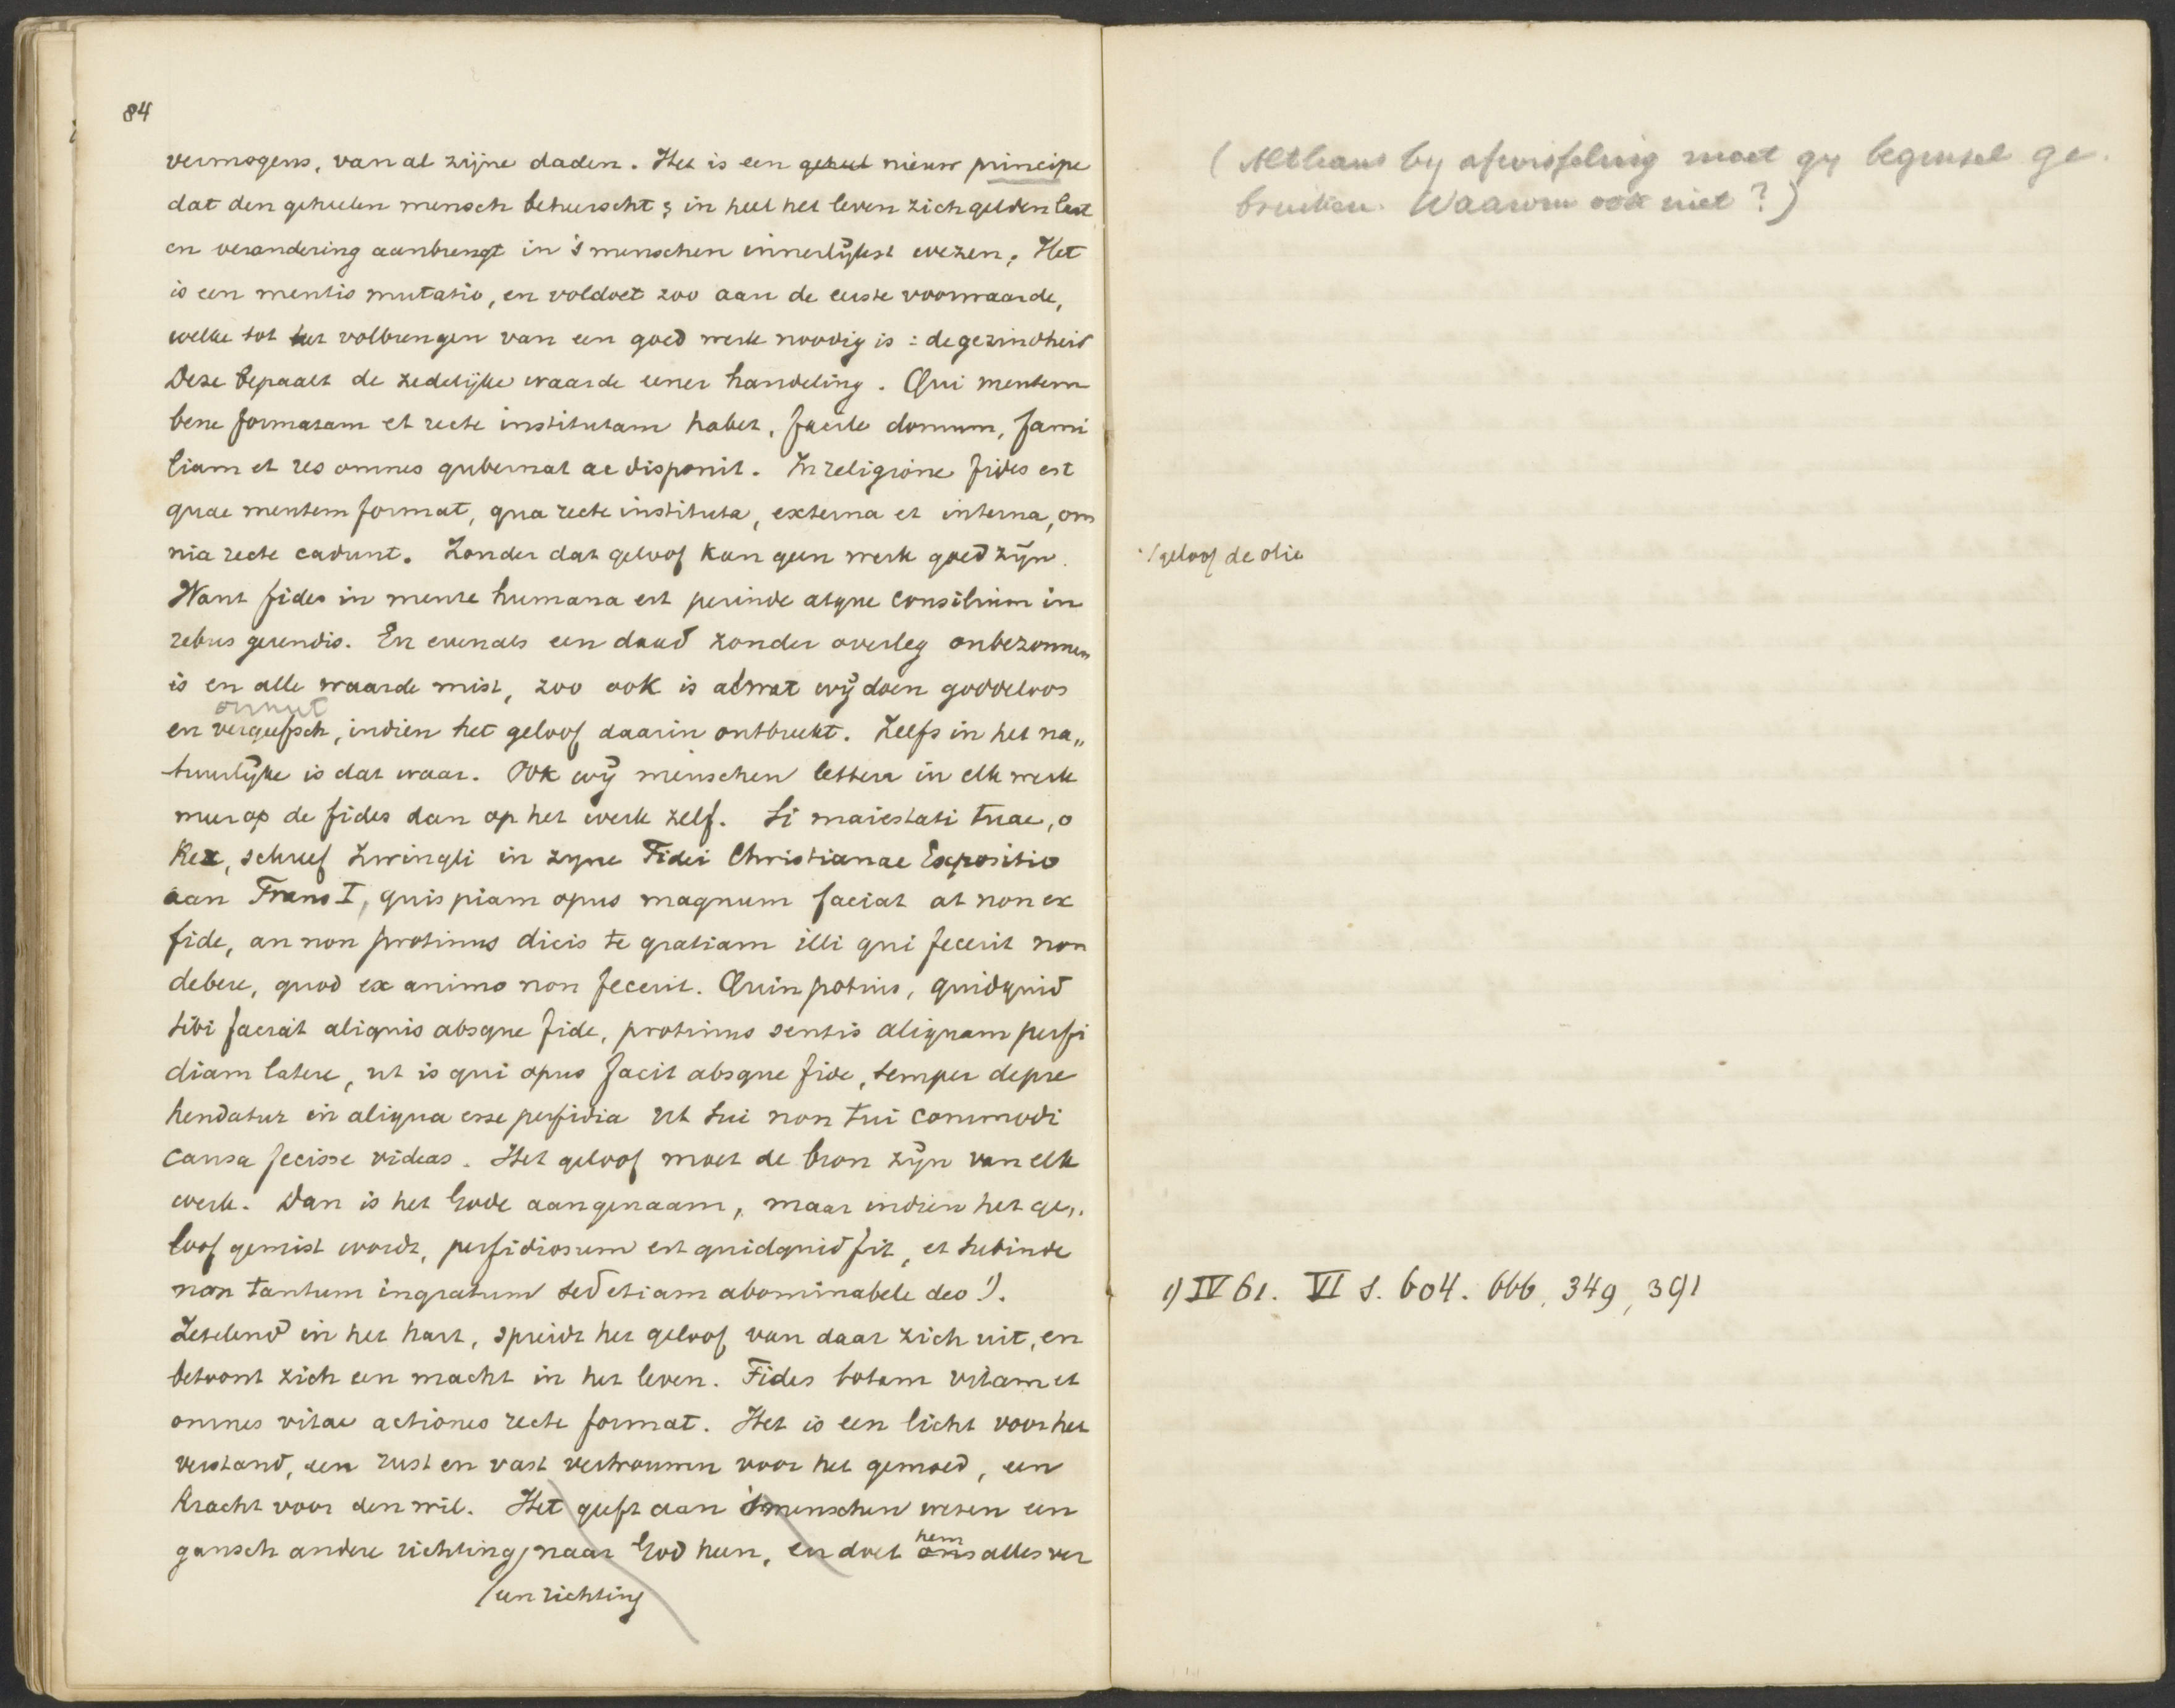 84
vermogens, van al zijne daden. Het is een geheel nieuw principe
dat den geheelen mensch beheerscht; in heel het leven zich gelden laat
en verandering aanbrengt in 's menschen innerlijkst wezen. Het
is een mentis mutatio, en voldoet zoo aan de eerste voorwaarde,
welke tot het volbrengen van een goed werk noodig is: de gezindheid
Deze bepaalt de zedelijke waarde eener handeling. Qui mentem
bene formatam et recte institutam habet, facile domum, fami
liam et res omnes gubernat ac disponit. In religione fides est
quae mentem format, qua recte instituta, externa et interna, om
nia recte cadunt. Zonder dat geloof kan geen werk goed zijn.
Want fides in mente humana est perinde atque consilium in
rebus gerendis. En evenals een daad zonder overleg onbezonnen
is en alle waarde mist, zoo ook is al wat wij doen goddeloos
onnut
en vergeefsch, indien het geloof daarin ontbreekt. Zelfs in het na„
tuurlijke is dat waar. Ook wij menschen letten in elk werk
meer op de fides dan op het werk zelf. Si maiestati tuae, o
Rex, schreef Zwingli in zyne Fidei Christianae Expositio
aan Frans I, quispiam opus magnum faciat at non ex
fide, an non protinus dicis te gratiam illi qui fecerit non
debere, quod ex animo non fecerit. Quin potius, quidquid
tibi faciat aliquis absque fide, protinus sentis aliquam perfi
diam latere, ut is qui opus facit absque fide, semper depre
hendatur in aliqua esse perfidia ut sui non tui commodi
causa fecisse videas. Het geloof moet de bron zijn van elk
werk. Dan is het Gode aangenaam, maar indien het ge„
loof gemist wordt, perfidiosum est quidquid fit, et subinde
non tantum ingratum sed etiam abominabele deo 1).
Zetelend in het hart, spreidt het geloof van daar zich uit, en
betoont zich een macht in het leven. Fides totam vitam et
omnes vitae actiones recte format. Het is een licht voor het
verstand, een rust en vast vertrouwen voor het gemoed, een
kracht voor den wil. Het geeft aan 's menschen wezen een
hem
gansch andere richting, naar God heen, en doet ons alles ver
/een richting
(Althans by afwisseling moet gy beginsel ge.
bruiken. Waarom ook niet?)
/geloof de olie
1) IV 61. VI S. 604. 666, 349, 391